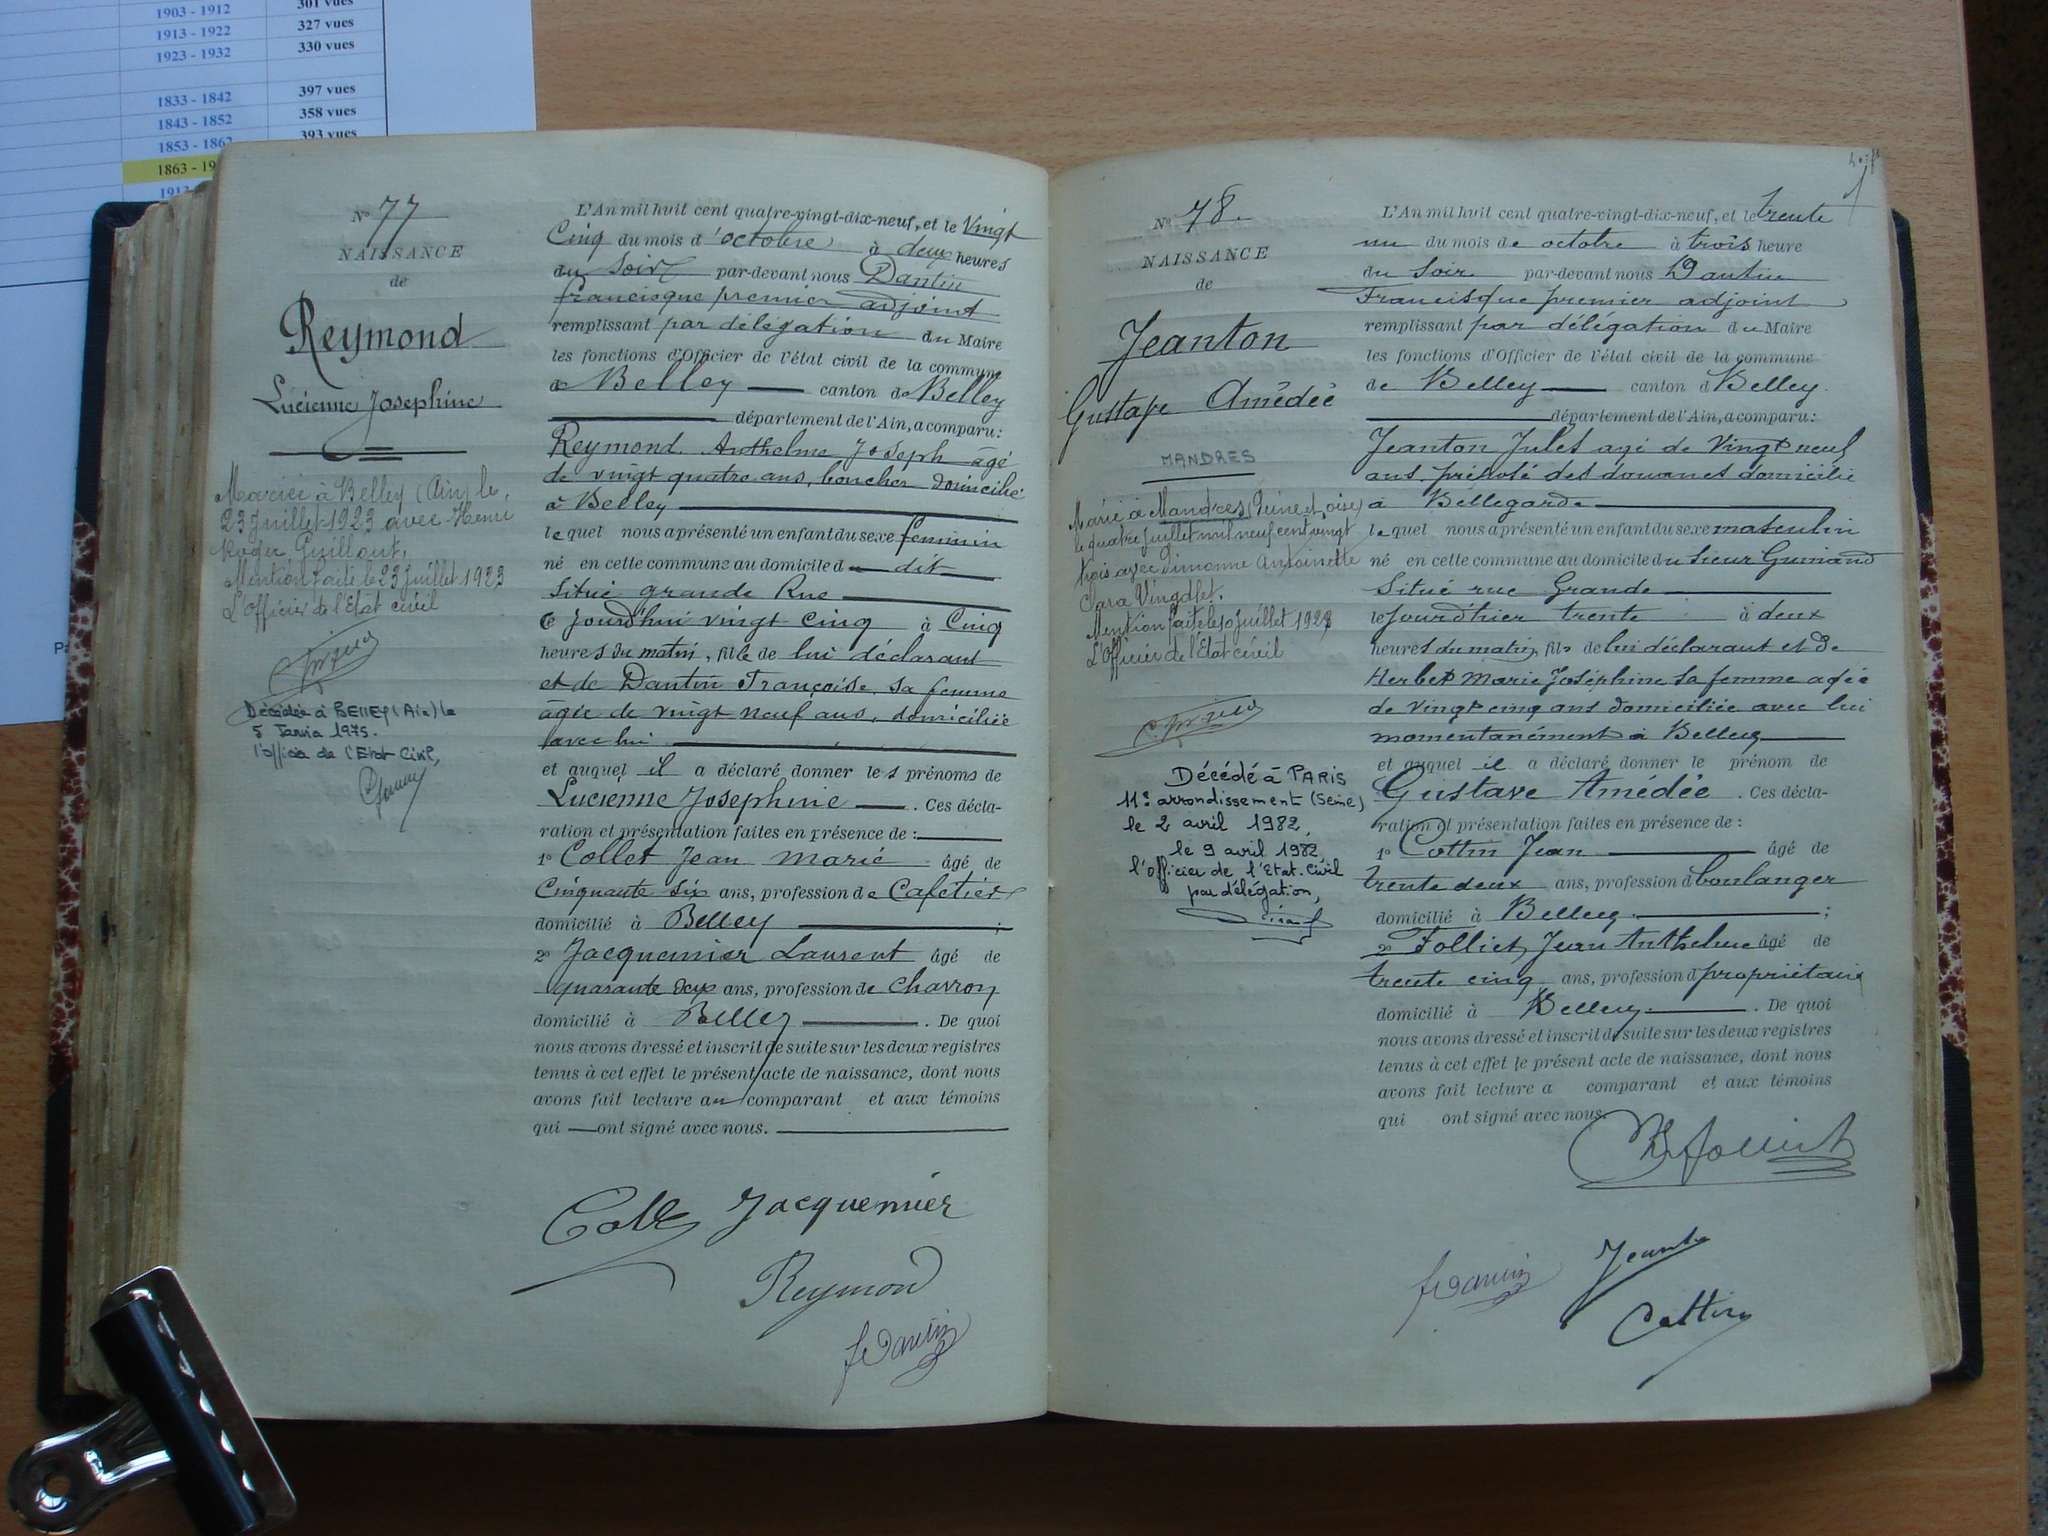 1903 - 1912 301 vues
1913 - 1922 327 vues
1923 - 1932 330 vues
1833 - 1842 397 vues
1843 - 1852 358 vues
1853 - 1862 393 vues
1863 - 19
1913
Pa
N° 77
NAISSANCE
de
Reymond
Lucienne Josephine
Mariée à Belley (Ain) le,
23 Juillet 1923 avec Henri
Roger Guillout,
Mention faite le 23 Juillet 1923
L'Officier de l'Etat civil
Décédée à BELLEY (Ain) le
5 Janvier 1975.
l'officier de l'Etat Civil,
L'An mil huit cent quatre-vingt-dix-neuf, et le Vingt
Cinq du mois d'octobre à deux heures
du Soir par-devant nous Dantin
francisque premier adjoint
remplissant par délégation du Maire
les fonctions d'Officier de l'état civil de la commune
de Belley canton de Belley
département de l'Ain, a comparu:
Reymond Anthelme Joseph âgé
de vingt quatre ans, boucher domicilié
à Belley
lequel nous a présenté un enfant du sexe feminin
né en cette commune au domicile dit
Situé grande Rue
Jourd'hui vingt cinq à Cinq
heures du matin, fille de lui déclarant
et de Dantin Françoise, sa femme
âgée de vingt neuf ans, domiciliée
avec lui
et auquel il a déclaré donner les prénoms de
Lucienne Josephine. Ces décla-
ration et présentation faites en présence de:
1° Collet Jean Marie âgé de
Cinquante six ans, profession de Cafetier
domicilié à Belley;
2° Jacquemier Laurent âgé de
quarante deux ans, profession de Charron
domicilié à Belley. De quoi
nous avons dressé et inscrit de suite sur les deux registres
tenus à cet effet le présent acte de naissance, dont nous
avons fait lecture au comparant et aux témoins
qui ont signé avec nous.
Collet Jacquemier
Reymond
f Dantin
N° 78.
NAISSANCE
de
Jeanton
Gustave Amédée
MANDRES
Marié à Mandres (Seine et Oise)
le quatre juillet mil neuf cent vingt
trois avec Simonne Antoinette
Clara
Mention faite le 10 Juillet 1923
L'Officier de l'Etat civil
Décédé à PARIS
11e arrondissement (Seine)
le 2 avril 1982,
le 9 avril 1982
l'officier de l'Etat-Civil
par délégation,
L'An mil huit cent quatre-vingt-dix-neuf, et le trente
un du mois de octobre à trois heure
du Soir par-devant nous Dantin
Francisque premier adjoint
remplissant par délégation du Maire
les fonctions d'Officier de l'état civil de la commune
de Belley canton d Belley.
département de l'Ain, a comparu:
Jeanton Jules agé de Vingt neuf
ans préposé des douanes domicilié
à Bellegarde
lequel nous a présenté un enfant du sexe masculin
né en cette commune au domicile du Sieur Guinand
Situé rue Grande
le Jourd'hier trente à deux
heures du matin, fils de lui déclarant et de
Herbet Marie Joséphine sa femme agée
de vingt cinq ans domiciliée avec lui
momentanément à Belley
et auquel il a déclaré donner le prénom de
Gustave Amédée. Ces décla-
ration et présentation faites en présence de:
1° Cottin Jean âgé de
trente deux ans, profession d boulanger
domicilié à Belley;
2° Folliet Jean Anthelme âgé de
trente cinq ans, profession d propriétaire
domicilié à Belley. De quoi
nous avons dressé et inscrit de suite sur les deux registres
tenus à cet effet le présent acte de naissance, dont nous
avons fait lecture a comparant et aux témoins
qui ont signé avec nous.
Folliet
f Dantin Jeanton
Cottin